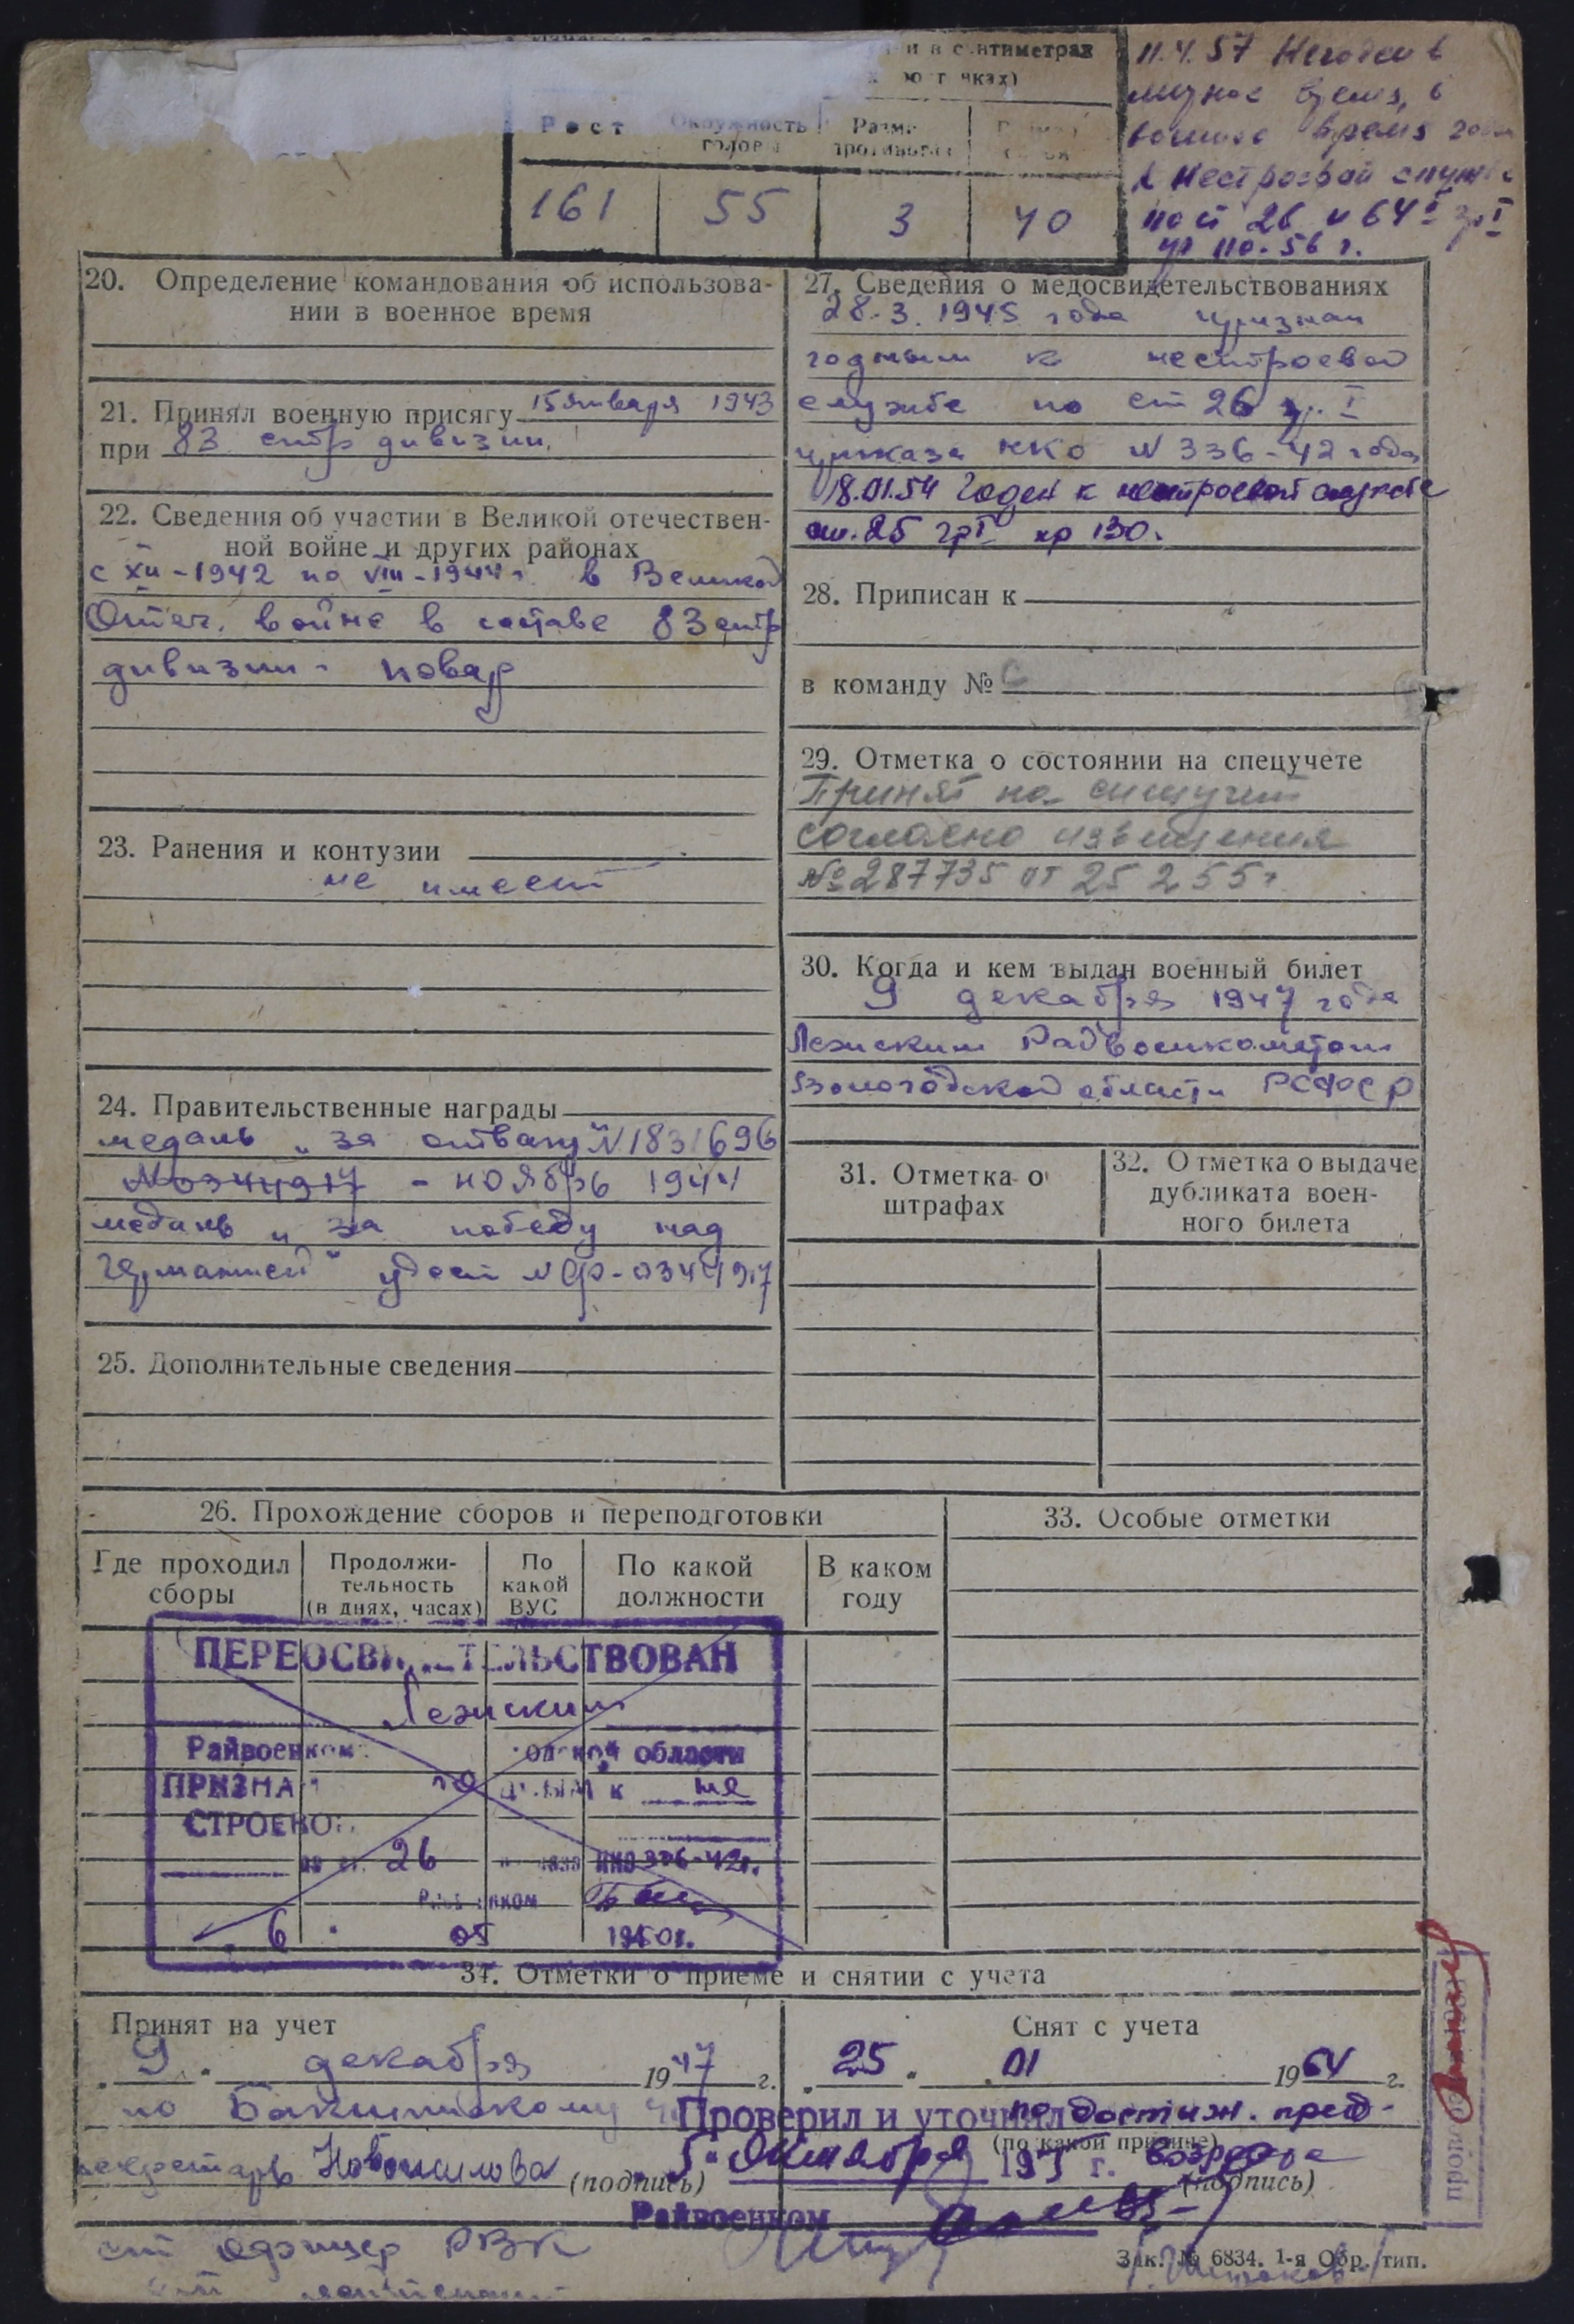 и в сантиметрах
Рост
Окружность головы
161
55
3
40
11.4.57 Негоден в
мирное время, в
военное время годен
к нестроевой службе
по ст 26 и 64 I гр. I
пр 110-56 г.
20. Определение командования об использова-
нии в военное время
21. Принял военную присягу 15 января 1943
при 83 стр дивизии.
22. Сведения об участии в Великой отечествен-
ной войне и других районах
с XII-1942 по VIII-1944 г. в Великой
Отеч. войне в составе 83 стр
дивизии - повар
23. Ранения и контузии
не имеет
24. Правительственные награды
медаль „за отвагу" N 1831696
N0344917 - ноябрь 1944
медаль „за победу над
Германией" удост N Ф-0344917
25. Дополнительные сведения
27. Сведения о медосвидетельствованиях
28.3.1945 года признан
годным к нестроевой
службе по ст 26 гр. I
приказа НКО N 336-42 года
18.01.54 Годен к нестроевой службе
ст. 25 гр I пр 130.
28. Приписан к
в команду № С
29. Отметка о состоянии на спецучете
Принят на спецучет
согласно извещения
№ 287735 от 25 2 55 г
30. Когда и кем выдан военный билет
9 декабря 1947 года
Лежским Райвоенкоматом
Вологодской области РСФСР
31. Отметка о
штрафах
32. Отметка о выдаче
дубликата воен-
ного билета
26. Прохождение сборов и переподготовки
33. Особые отметки
Где проходил
сборы
Продолжи-
тельность
(в днях, часах)
По
какой
ВУС
По какой
должности
В каком
году
ПЕРЕОСВИДЕТЕЛЬСТВОВАН
Лежским
Райвоенком области
ПРИЗНАН годным к не
СТРОЕВОЙ
по ст. 26 НКО 336-42г.
6 05 1950г.
34. Отметки о приеме и снятии с учета
Принят на учет
9 декабря 1947 г.
по Бакшинскому
секретарь Новожилова (подпись)
ст офицер РВК
ст лейтенант
Снят с учета
25 01 1964 г.
по достиж. пред-
(по какой причине) возраста
(подпись)
Проверил и уточнил
5 октября 195 г.
Райвоенком
Зак. № 6834. 1-я Обр. тип.